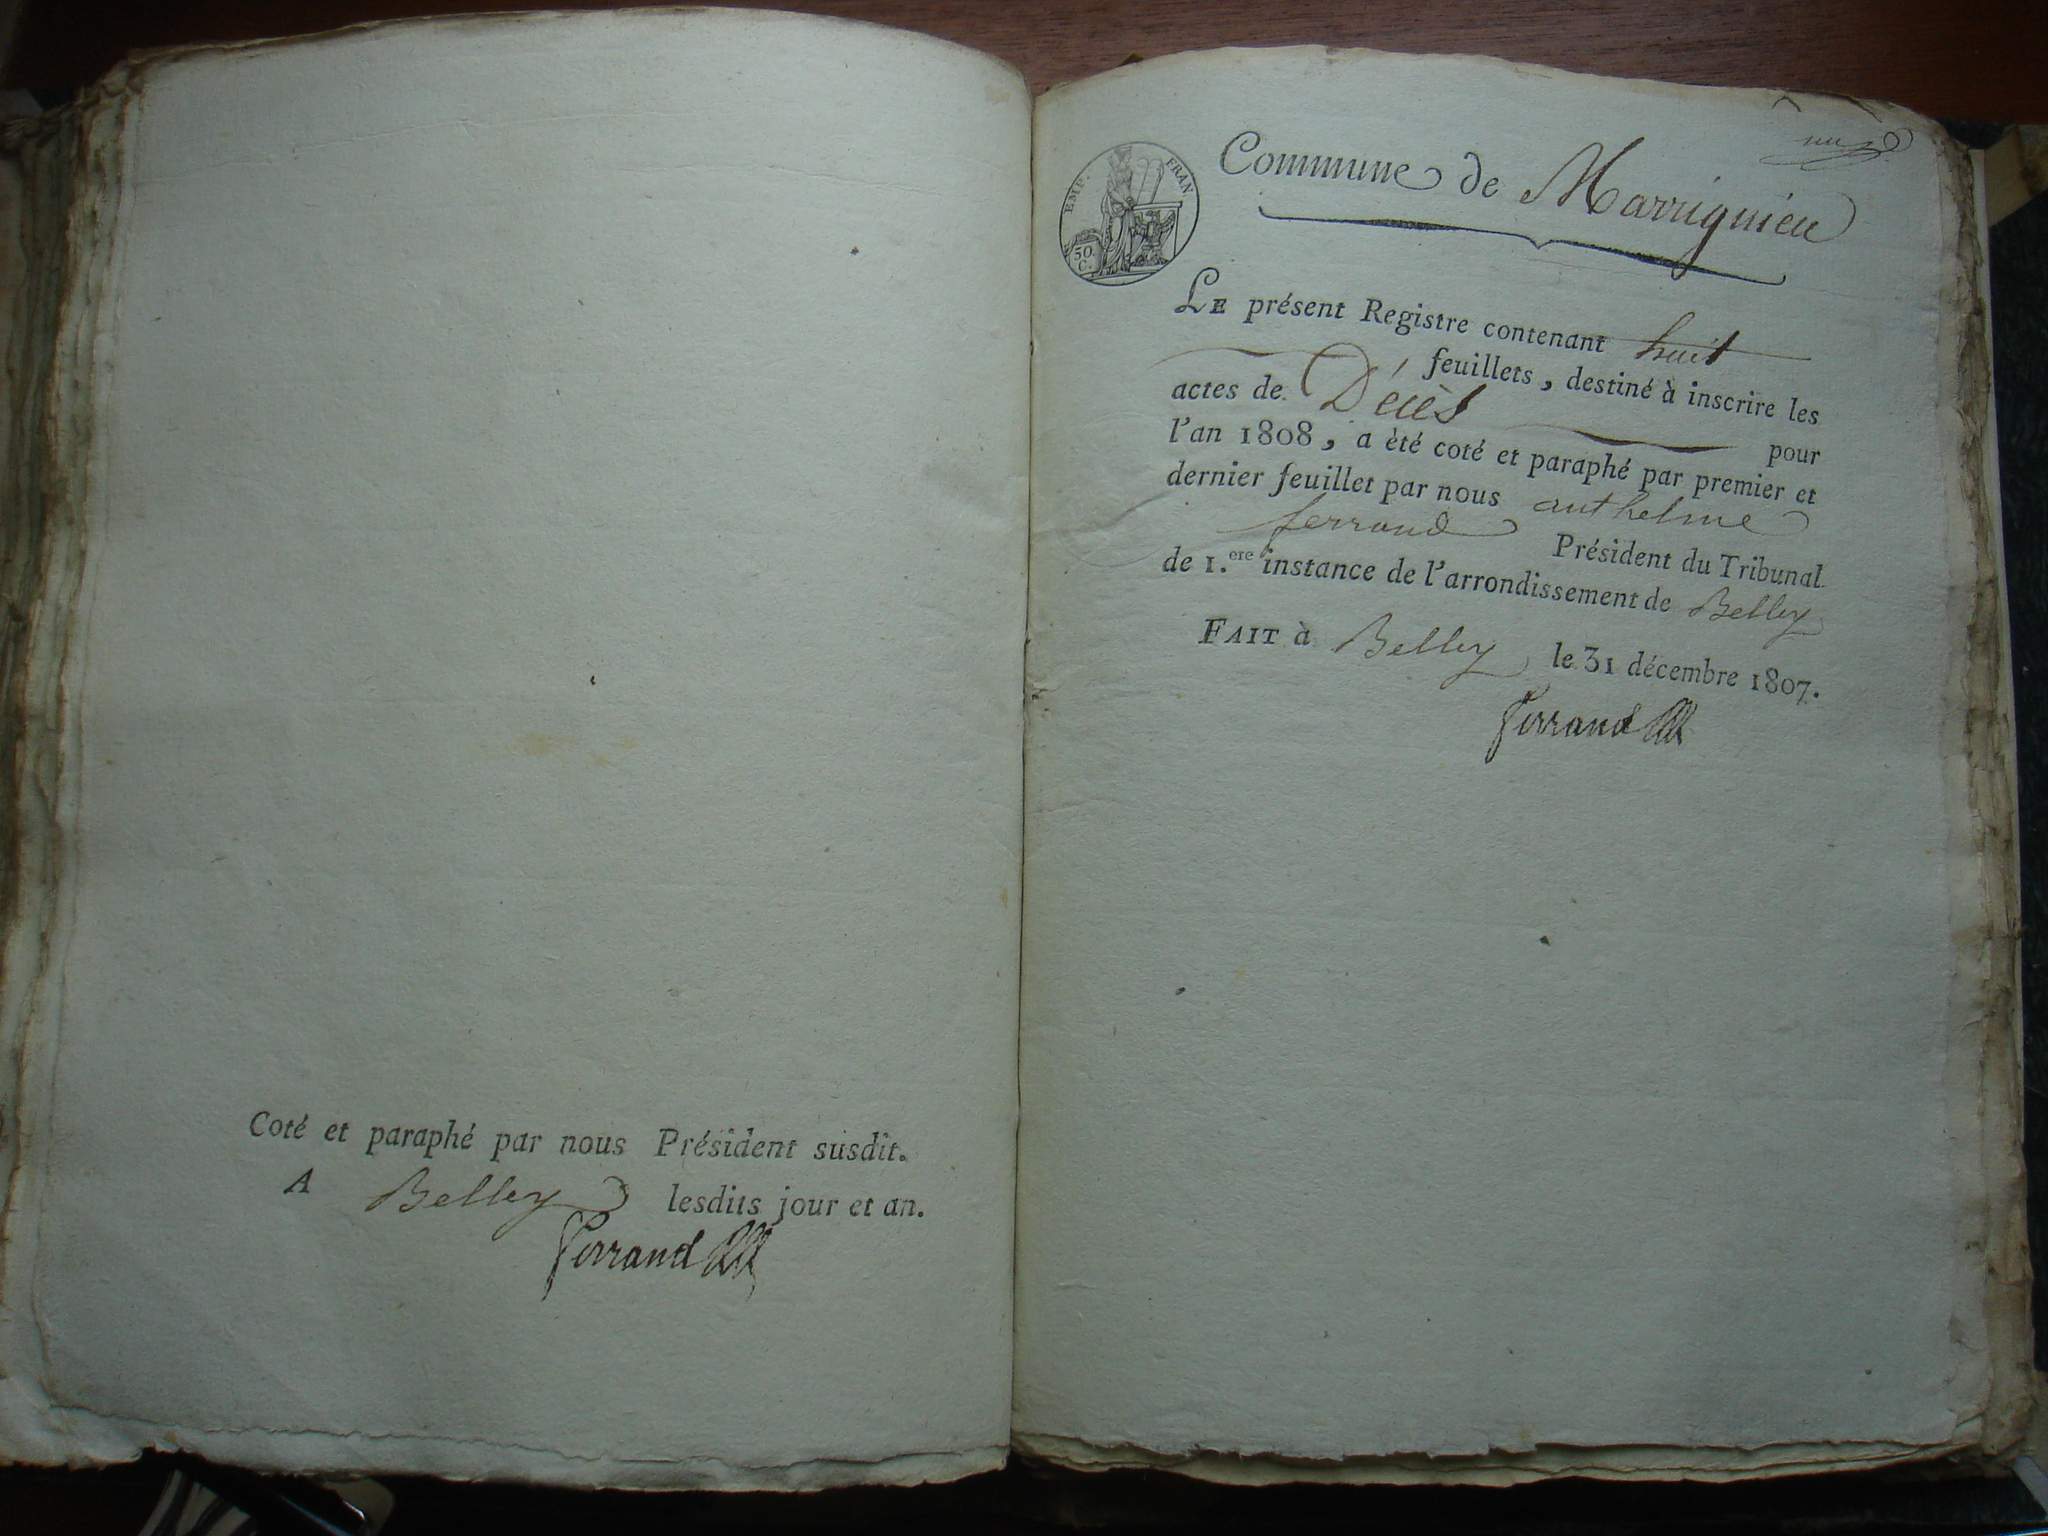 Coté et paraphé par nous Président susdit.
A Belley lesdits jour et an.
Ferrand
EMP. FRAN
50.
C.
Commune de Marrignieu
LE présent Registre contenant huit
feuillets, destiné à inscrire les
actes de Décès pour
l'an 1808, a èté coté et paraphé par premier et
dernier feuillet par nous anthelme
ferrand Président du Tribunal
de 1.ere instance de l'arrondissement de Belley
FAIT à Belley le 31 décembre 1807.
Ferrand